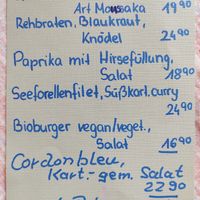 Art Moussaka 19⁹⁰
Rehbraten, Blaukraut,
Knödel 24⁹⁰
Paprika mit Hirsefüllung,
Salat 18⁹⁰
Seeforellenfilet, Süßkart.curry
24⁹⁰
Bioburger vegan/veget.,
Salat 16⁹⁰
Cordonbleu,
Kart.-gem. Salat
22⁹⁰